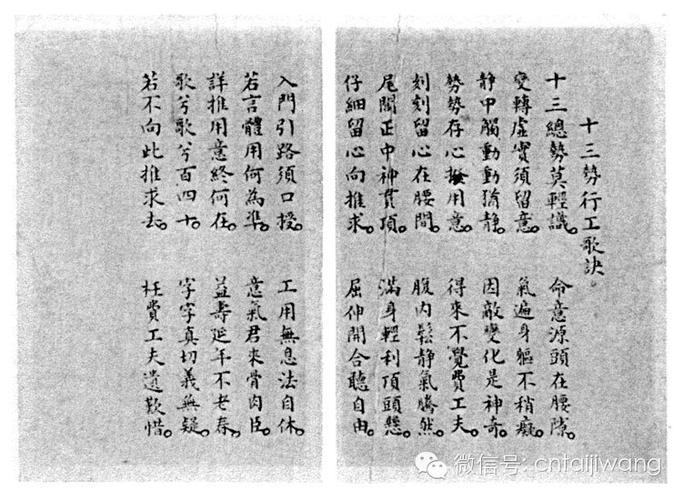 十三勢行工歌訣。
十三總勢莫輕識。 命意源頭在腰隙。
變轉虛實須留意。 氣遍身軀不稍癡。
静中觸動動猶静。 因敵變化是神奇。
勢勢存心揆用意。 得來不覺費工夫。
刻刻留心在腰間。 腹内鬆静氣騰然。
尾閭正中神貫頂。 滿身輕利頂頭懸。
仔細留心向推求。 屈伸開合聽自由。
入門引路須口授。 工用無息法自休。
若言體用何為準。 意氣君來骨肉臣。
詳推用意終何在。 益壽延年不老春。
歌兮歌兮百四十。 字字真切義無疑。
若不向此推求去。 枉費工夫遺歎惜。
微信号: cntaijiwang